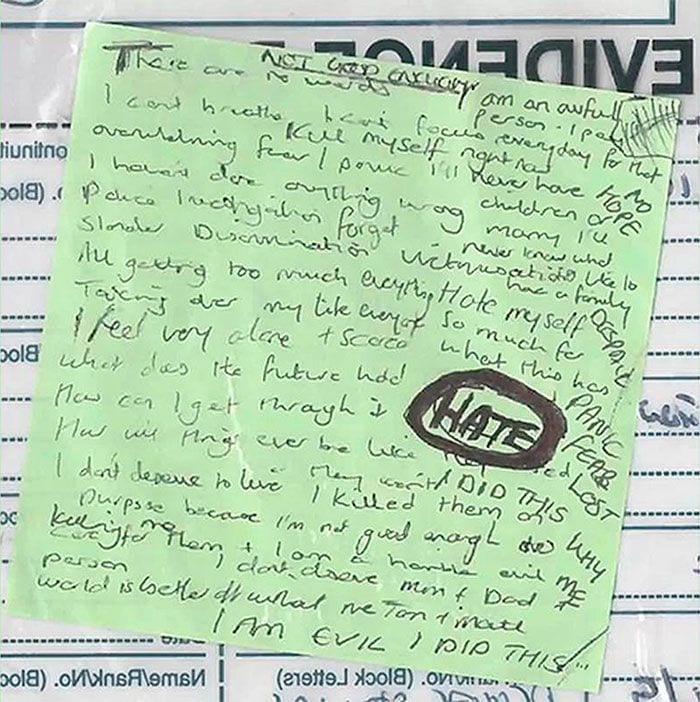 EVIDENCE
NOT GOOD ENOUGH
There are no words
I am an awful person. I pay
I cant breathe I cant focus everyday for that
Kill myself right now
overwhelming fear / panic I'll never have NO HOPE
I havent done anything wrong children or marry I'll
Police Investigation forget never know what
Slander Discrimination Victimisation its like to have a family
All getting too much everything Hate myself DESPAIR
Taking over my life everyday so much for
I feel very alone + scared what this has
What does the future hold PANIC
How can I get through it HATE FEAR
How will things ever be like LOST
I DID THIS
I don't deserve to live I killed them on WHY
purpose because I'm not good enough to ME
care for them + I am a horrible evil
Killing me
person I dont deserve mum + Dad
world is better off without me
I AM EVIL I DID THIS
Name/Rank/No. (Block
/No. (Block Letters)